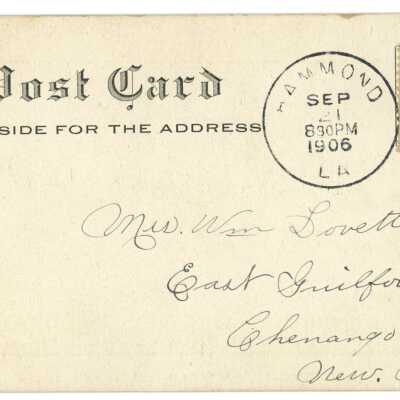 Post Card
SIDE FOR THE ADDRESS
HAMMOND
SEP
21
830PM
1906
LA
Mrs. Wm Lovett
East Guilfo
Chenango
New.